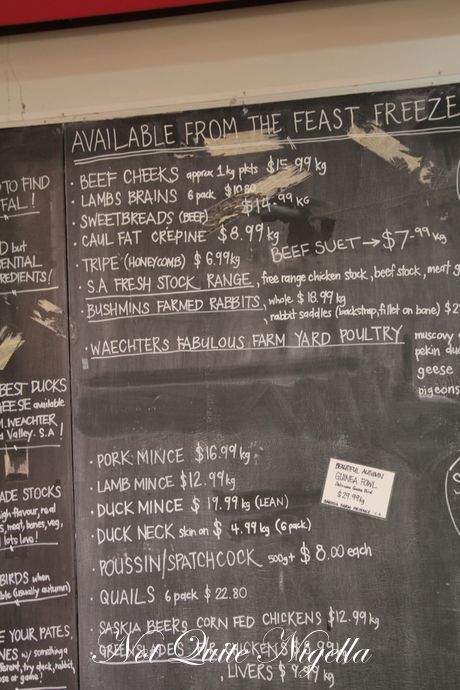 AVAILABLE FROM THE FEAST FREEZE
· BEEF CHEEKS approx 1kg pkts $15.99 kg
· LAMBS BRAINS 6 pack $10.80
· SWEETBREADS (BEEF) $14.99 KG
· CAUL FAT CREPINE $8.99kg
BEEF SUET → $7.99 kg
· TRIPE (HONEYCOMB) $6.99kg
· S.A FRESH STOCK RANGE, free range chicken stock, beef stock, meat g
· BUSHMINS FARMED RABBITS, whole $18.99kg
, rabbit saddles (backstrap, fillet on bone) $2
· WAECHTERS FABULOUS FARM YARD POULTRY
muscovy
pekin du
geese
pigeons
· PORK MINCE $16.99kg
· LAMB MINCE $12.99kg
· DUCK MINCE $19.99kg (LEAN)
· DUCK NECK skin on $4.99kg (6 pack)
· POUSSIN/SPATCHCOCK 500g+ $8.00 each
· QUAILS 6 pack $22.80
· SASKIA BEERS CORN FED CHICKENS $12.99 kg
GREENSLADES CHICKENS
, LIVERS $9.99 kg
BEAUTIFUL AUTUMN
GUINEA FOWL
$29.99kg
TO FIND
FAL!
D but
ENTIAL
REDIENTS!
BEST DUCKS
EESE available
M. WEACHTER
Valley. S.A!
ADE STOCKS
igh flavour, real
meat, bones, veg,
lots love!
BIRDS when
ble (usually autumn)
E YOUR PATES,
NES w/ something
fferent, try duck, rabbit,
ose or game!
Not Quite Nigella